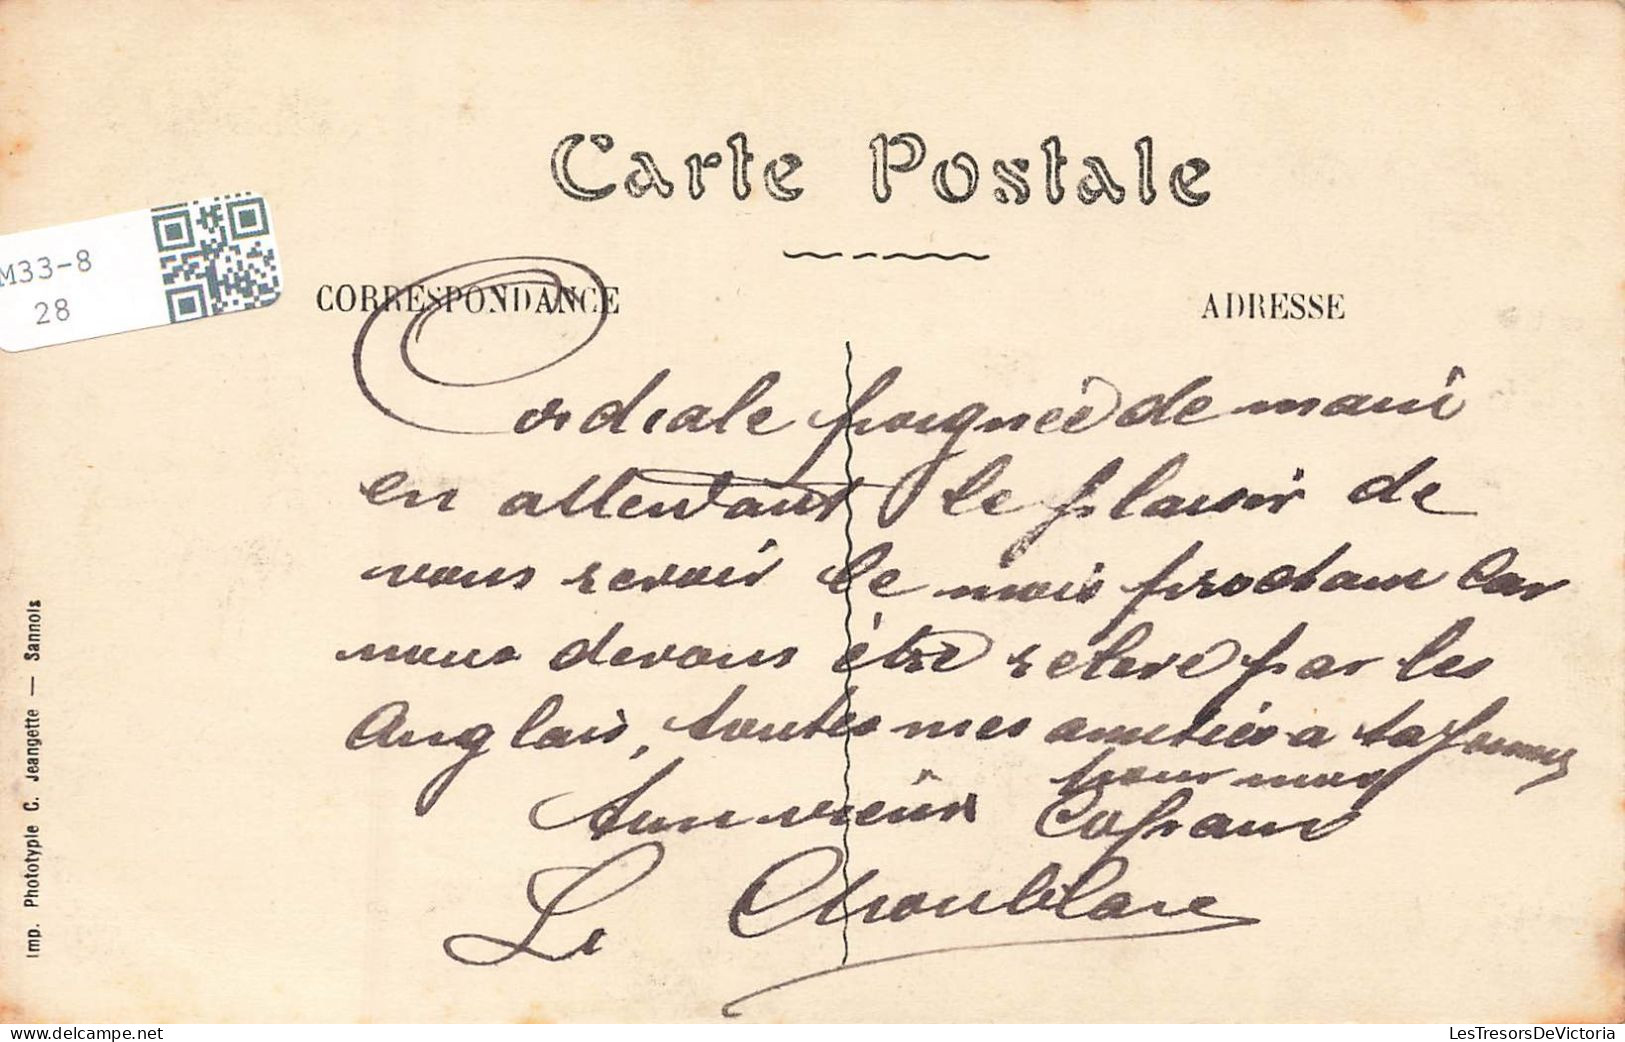 Carte Postale
M33-8
28
CORRESPONDANCE
ADRESSE
Cordiale poignée de main
en attendant le plaisir de
vous revoir le mois prochain Car
nous devons être relevé par les
Anglais, toutes mes amitiés a ta femme
pour moi
ton vieux Copain
Le
Imp. Phototypie C. Jeangette — Sannois
delcampe.net
LesTresorsDeVictoria